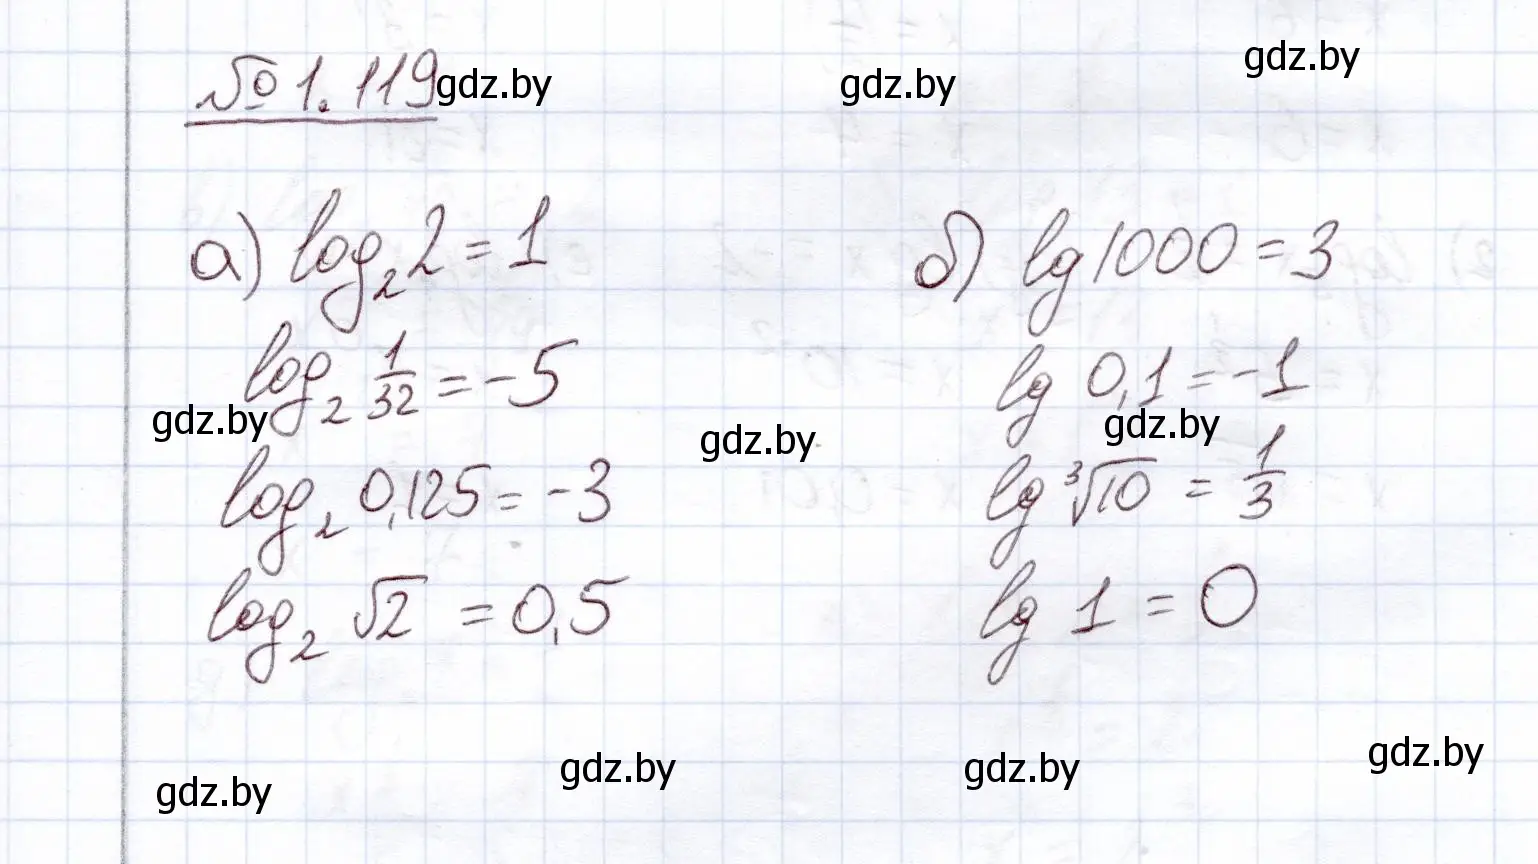 № 1.119
а) log₂ 2 = 1
log₂ 1/32 = -5
log₂ 0,125 = -3
log₂ √2 = 0,5
б) lg 1000 = 3
lg 0,1 = -1
lg ∛10 = 1/3
lg 1 = 0
gdz.by
gdz.by
gdz.by
gdz.by
gdz.by
gdz.by
gdz.by
gdz.by
gdz.by
gdz.by